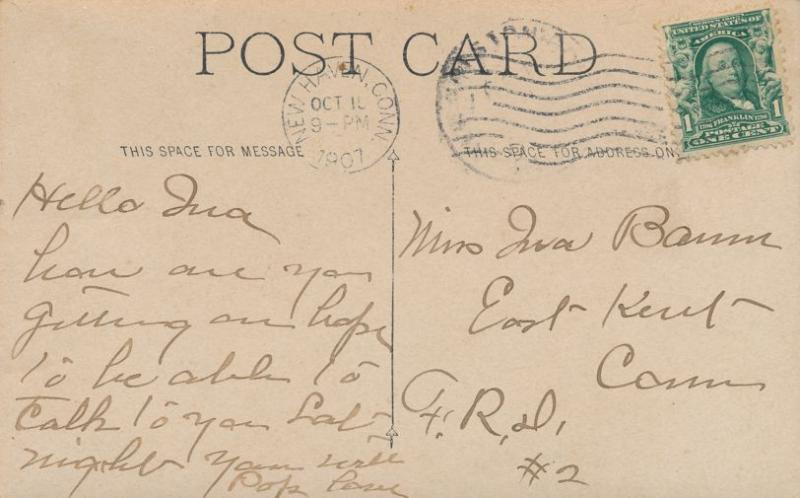 POST CARD
NEW HAVEN, CONN.
OCT 1
9-PM
1907
UNITED STATES OF
AMERICA
1 FRANKLIN 1
POSTAGE
ONE CENT
THIS SPACE FOR MESSAGE
THIS SPACE FOR ADDRESS ON
Hello Iva
how are you
getting on hope
to be able to
talk to you Sat
night your
Pop Love
Miss Iva Baum
East Kent
Conn
F. R. D.
#2